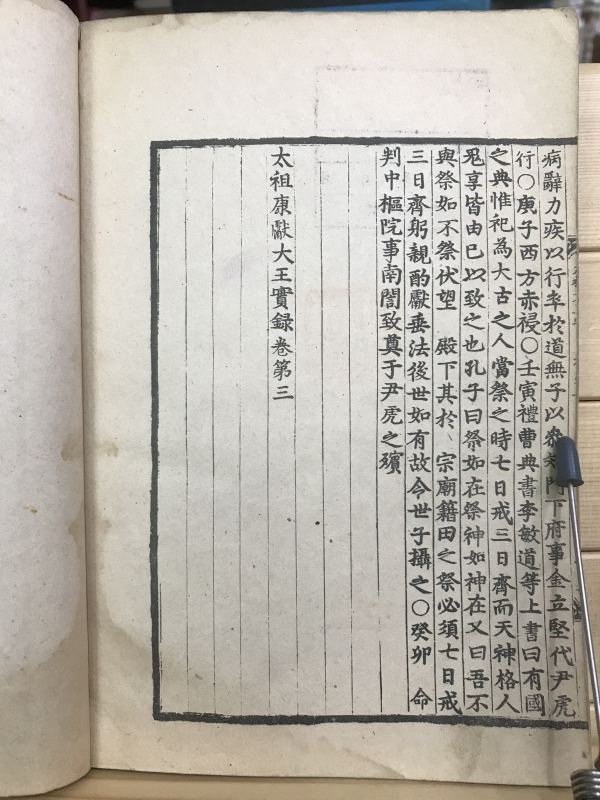 病辭力疾以行率於道無子以參知門下府事金立堅代尹虎
行〇庚子西方赤祲〇壬寅禮曹典書李敏道等上書曰有國
之典惟祀為大古之人當祭之時七日戒三日齊而天神格人
鬼享皆由已以致之也孔子曰祭如在祭神如神在又曰吾不
與祭如不祭伏望 殿下其於 宗廟籍田之祭必須七日戒
三日齊躬親酌獻垂法後世如有故令世子攝之〇癸卯 命
判中樞院事南誾致奠于尹虎之殯
太祖康獻大王實錄卷第三